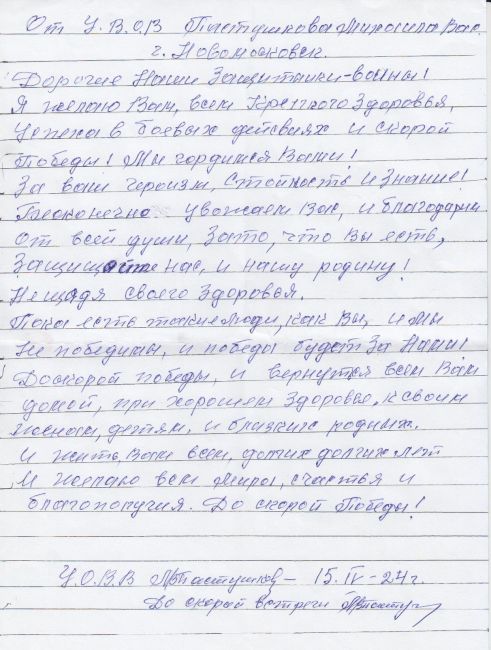 От У.В.О.В Пастушкова Михаила Вас.
г. Новомосковск.
Дорогие Наши Защитники-воины!
Я желаю Вам, всем Крепкого Здоровья,
Успеха в боевых действиях и скорой
Победы! Мы гордимся Вами!
За ваш героизм, Стойкость и Знание!
Бесконечно уважаем Вас, и благодарим
От всей души, Зато, что Вы есть,
Защищаете нас, и нашу родину!
Не щадя своего Здоровья.
Пока есть такие люди, как Вы, и Мы
Не победимы, и победа будет За Нами!
До скорой победы, и вернутся всем Вам
домой, при хорошем Здоровье, к своим
жёнам, детям, и близких родных.
И жить Вам всем, долгих долгих лет
И желаю всем Мира, счастья и
благополучия. До скорой Победы!
У.О.В.В Пастушков – 15.IV-24г.
До скорой встречи